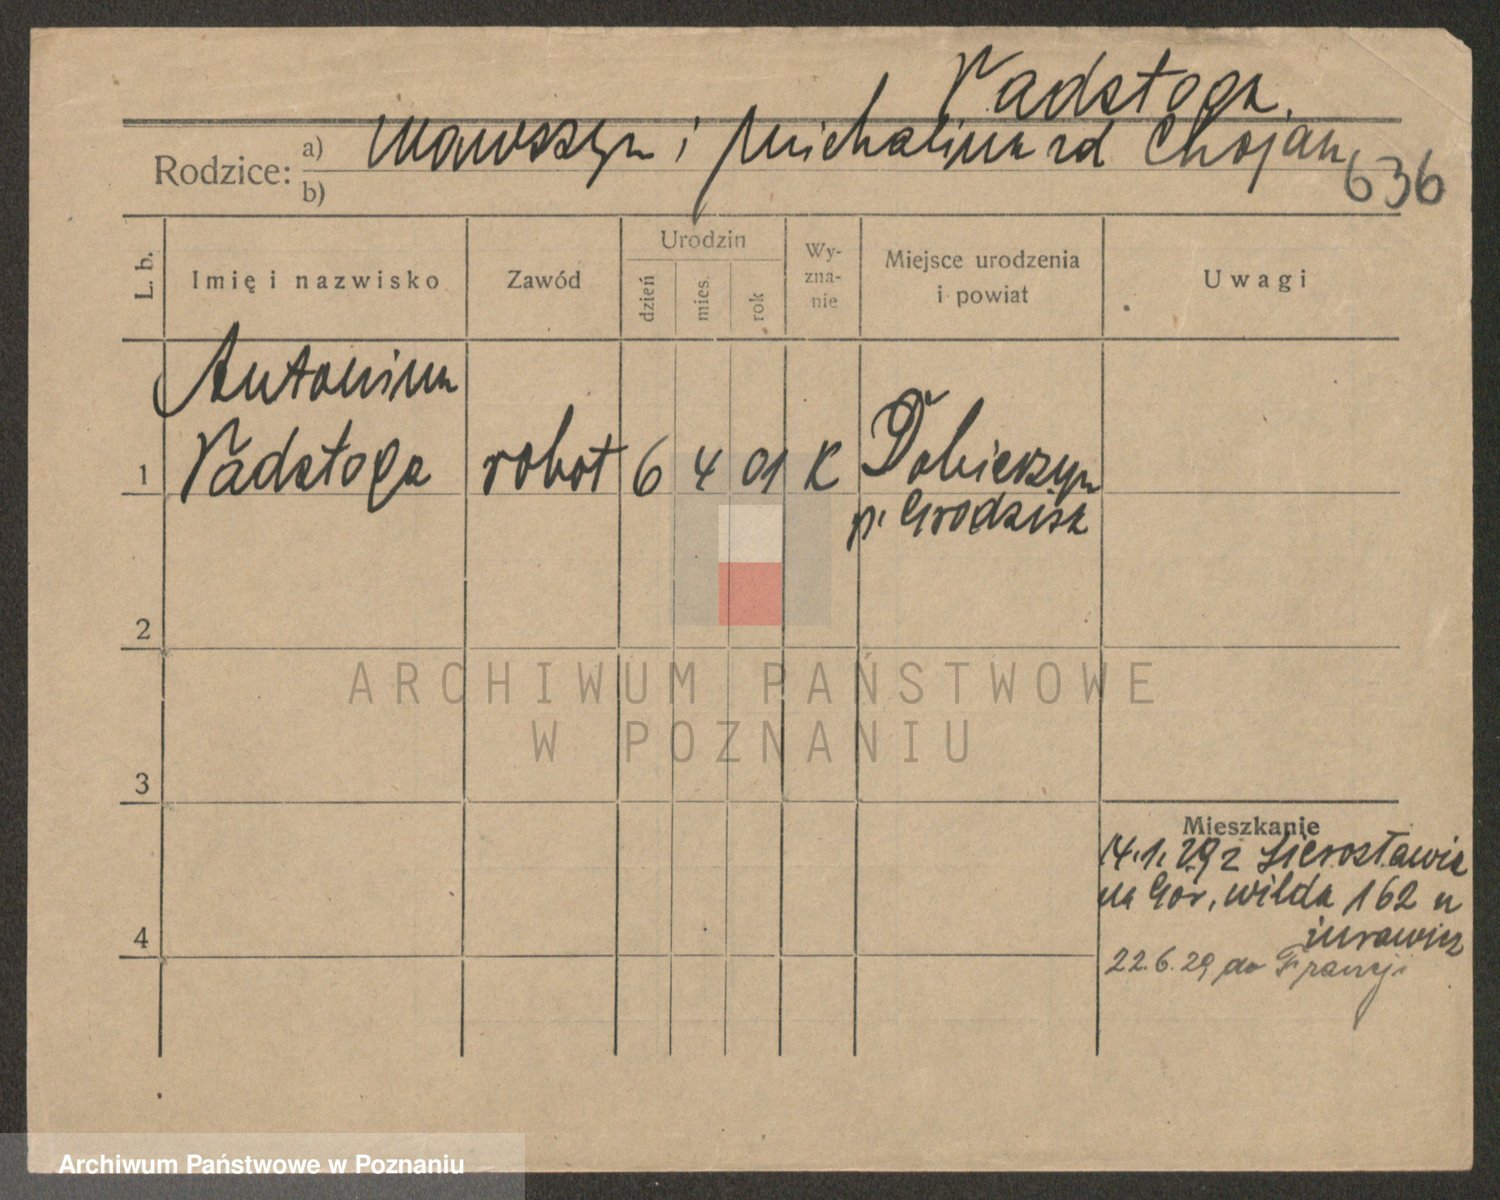 Vadstoga
Wawrzyn i Michalina zd Chojan
636
Rodzice: a)
b)
L. b.
Imię i nazwisko
Zawód
Urodzin
dzień
mies.
rok
Wy-
zna-
nie
Miejsce urodzenia
i powiat
Uwagi
Antonina
1 Vadstoga robot 6 4 01 K Dobieszyn
p. Grodzisk
2
3
4
Mieszkanie
14.1.29 z Sierosławia
na Gór. Wilda 162 u
22.6.29 do Francji
ARCHIWUM PAŃSTWOWE
W POZNANIU
Archiwum Państwowe w Poznaniu